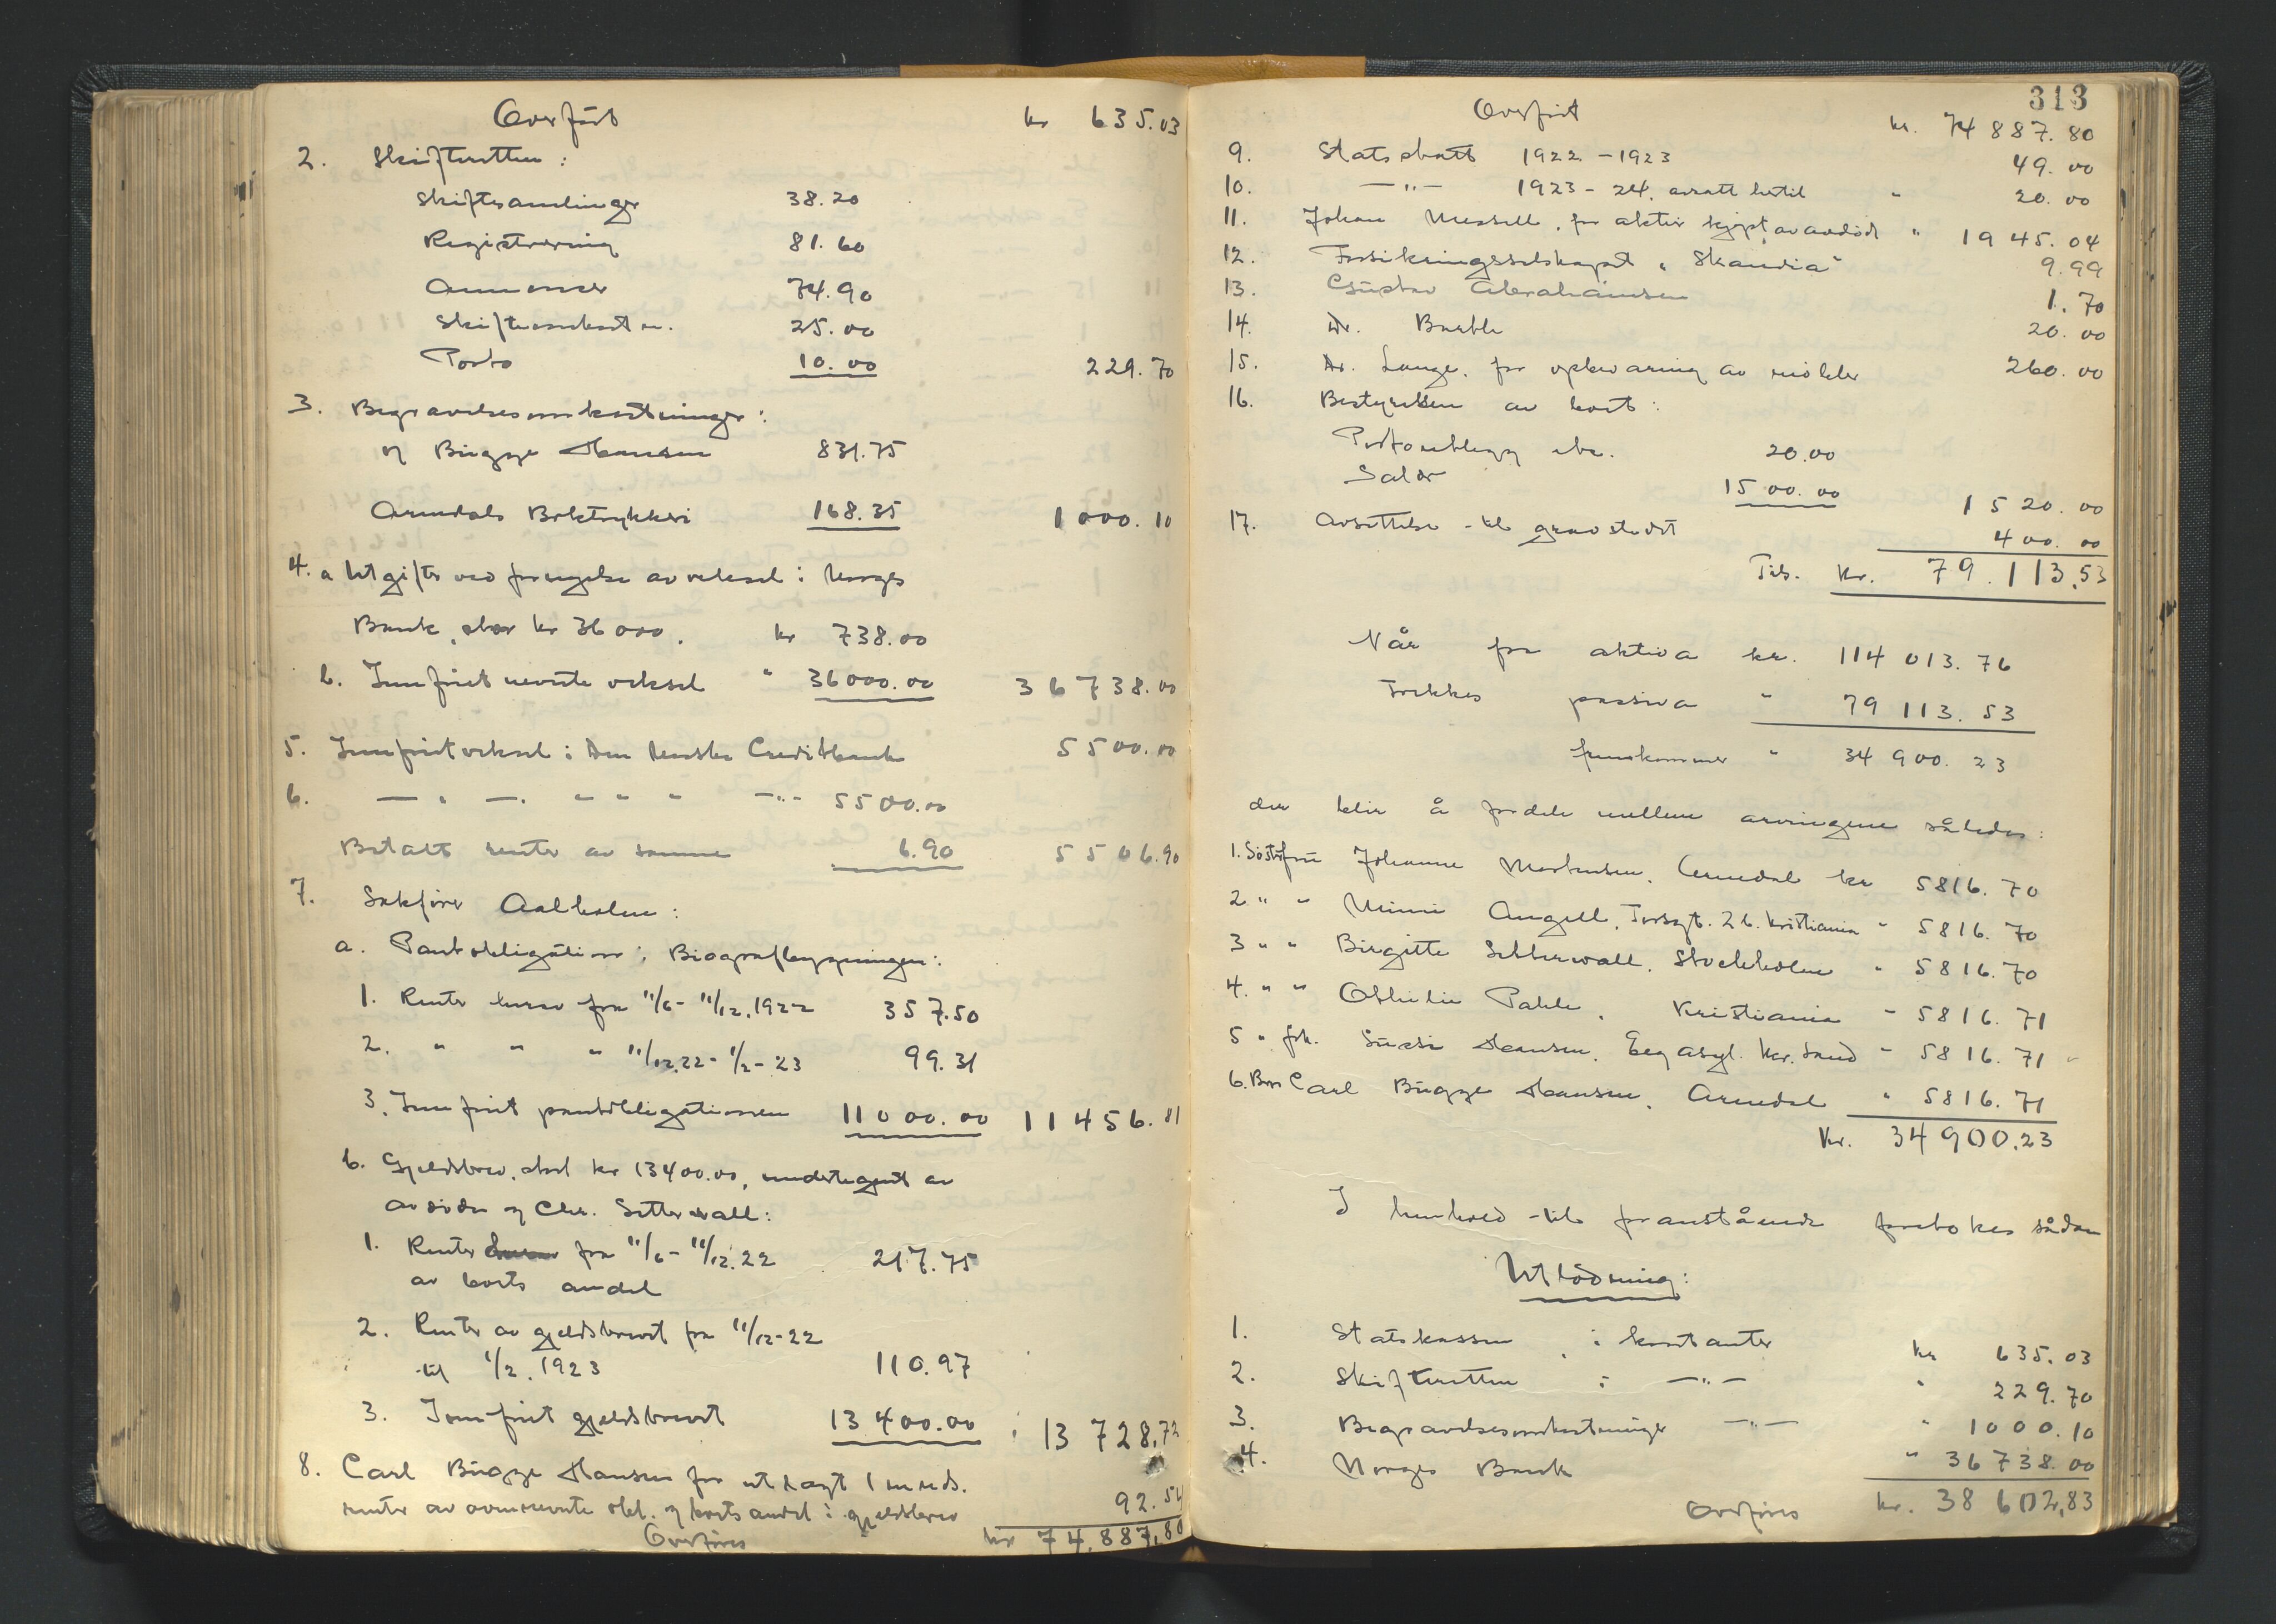 Overført kr 635.03
2. Skifteretten:
Skiftesamlinger 38.20
Registrering 81.60
Annonser 74.90
Skifteomkostn. 25.00
Porto 10.00 229.70
3. Begravelsesomkostninger:
Bugge Hansen 831.75
Arendals Boktrykkeri 168.35 1000.10
4. a Utgifter ved fornyelse av veksel i Norges
Bank, stor kr 36000. kr 738.00
b. Innfriet nevnte veksel " 36000.00 36738.00
5. Innfriet veksel i Den norske Creditbank 5500.00
6. — " — " " " —"— 5500.00
Betalt renter av samme 6.90 5506.90
7. Sakfører Aalholm:
a. Pantobligation i Biografbygningen:
1. Renter herav fra 11/6 - 11/12.1922 357.50
2. " " " 11/12.22 - 1/2 - 23 99.31
3. Innfriet pantobligationen 11000.00 11456.81
b. Gjeldsbrev, stort kr 13400.00, undertegnet av
avdøde og Chr. Setterwall:
1. Renter fra 11/6 - 11/12.22 217.75
av boets andel
2. Renter av gjeldsbrevet fra 11/12-22
til 1/2.1923 110.97
3. Innfriet gjeldsbrevet 13400.00 13728,72
8. Carl Bugge Hansen for utlagt 1 mnds.
renter av ovennevnte obl. og boets andel i gjeldsbrev 92.54
Overføres kr 74.887,80
313
Overført kr. 74887.80
9. Statsskatt 1922 - 1923 49.00
10. —"— 1923 - 24, avsatt hertil " 20.00
11. Johan Messell, for aktier kjøpt av avdøde " 1945.04
12. Forsikringsselskapet "Skandia" 9.99
13. Gustav Abrahamsen 1.70
14. Dr. 20.00
15. Dr. Lange, for opbevaring av møbler 260.00
16. Bestyrelsen av boet:
Portoutlegg etc. 20.00
Salær 1500.00 1520.00
17. Avsettelse til gravstedet 400.00
Tils. Kr. 79.113,53
Når fra aktiva kr. 114013.76
trekkes passiva " 79113.53
fremkommer " 34900.23
der blir å fordele mellem arvingene således:
1. Søster fru Johanne Mortensen, Arendal kr 5816.70
2 " " Minni Angell, Torsgt. 26. Kristiania " 5816.70
3 " " Birgitte Setterwall. Stockholm " 5816.70
4. " " Othilie Pahle, Kristiania " 5816.71
5 " frk. Hansen, Eeg asyl. Kr. Sand " 5816.71
6. Bror Carl Bugge Hansen, Arendal " 5816.71
Kr. 34900.23
I henhold til foranstående foretokes sådan
Utlodning:
1. Statskassen i kontanter kr 635.03
2. Skifteretten i —"— " 229.70
3. Begravelsesomkostninger —"— " 1000.10
4. Norges Bank " 36738.00
Overføres kr. 38602,83